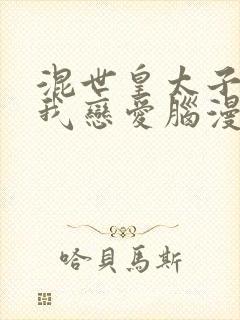 混世皇太子
我戀愛腦漫
哈貝馬斯